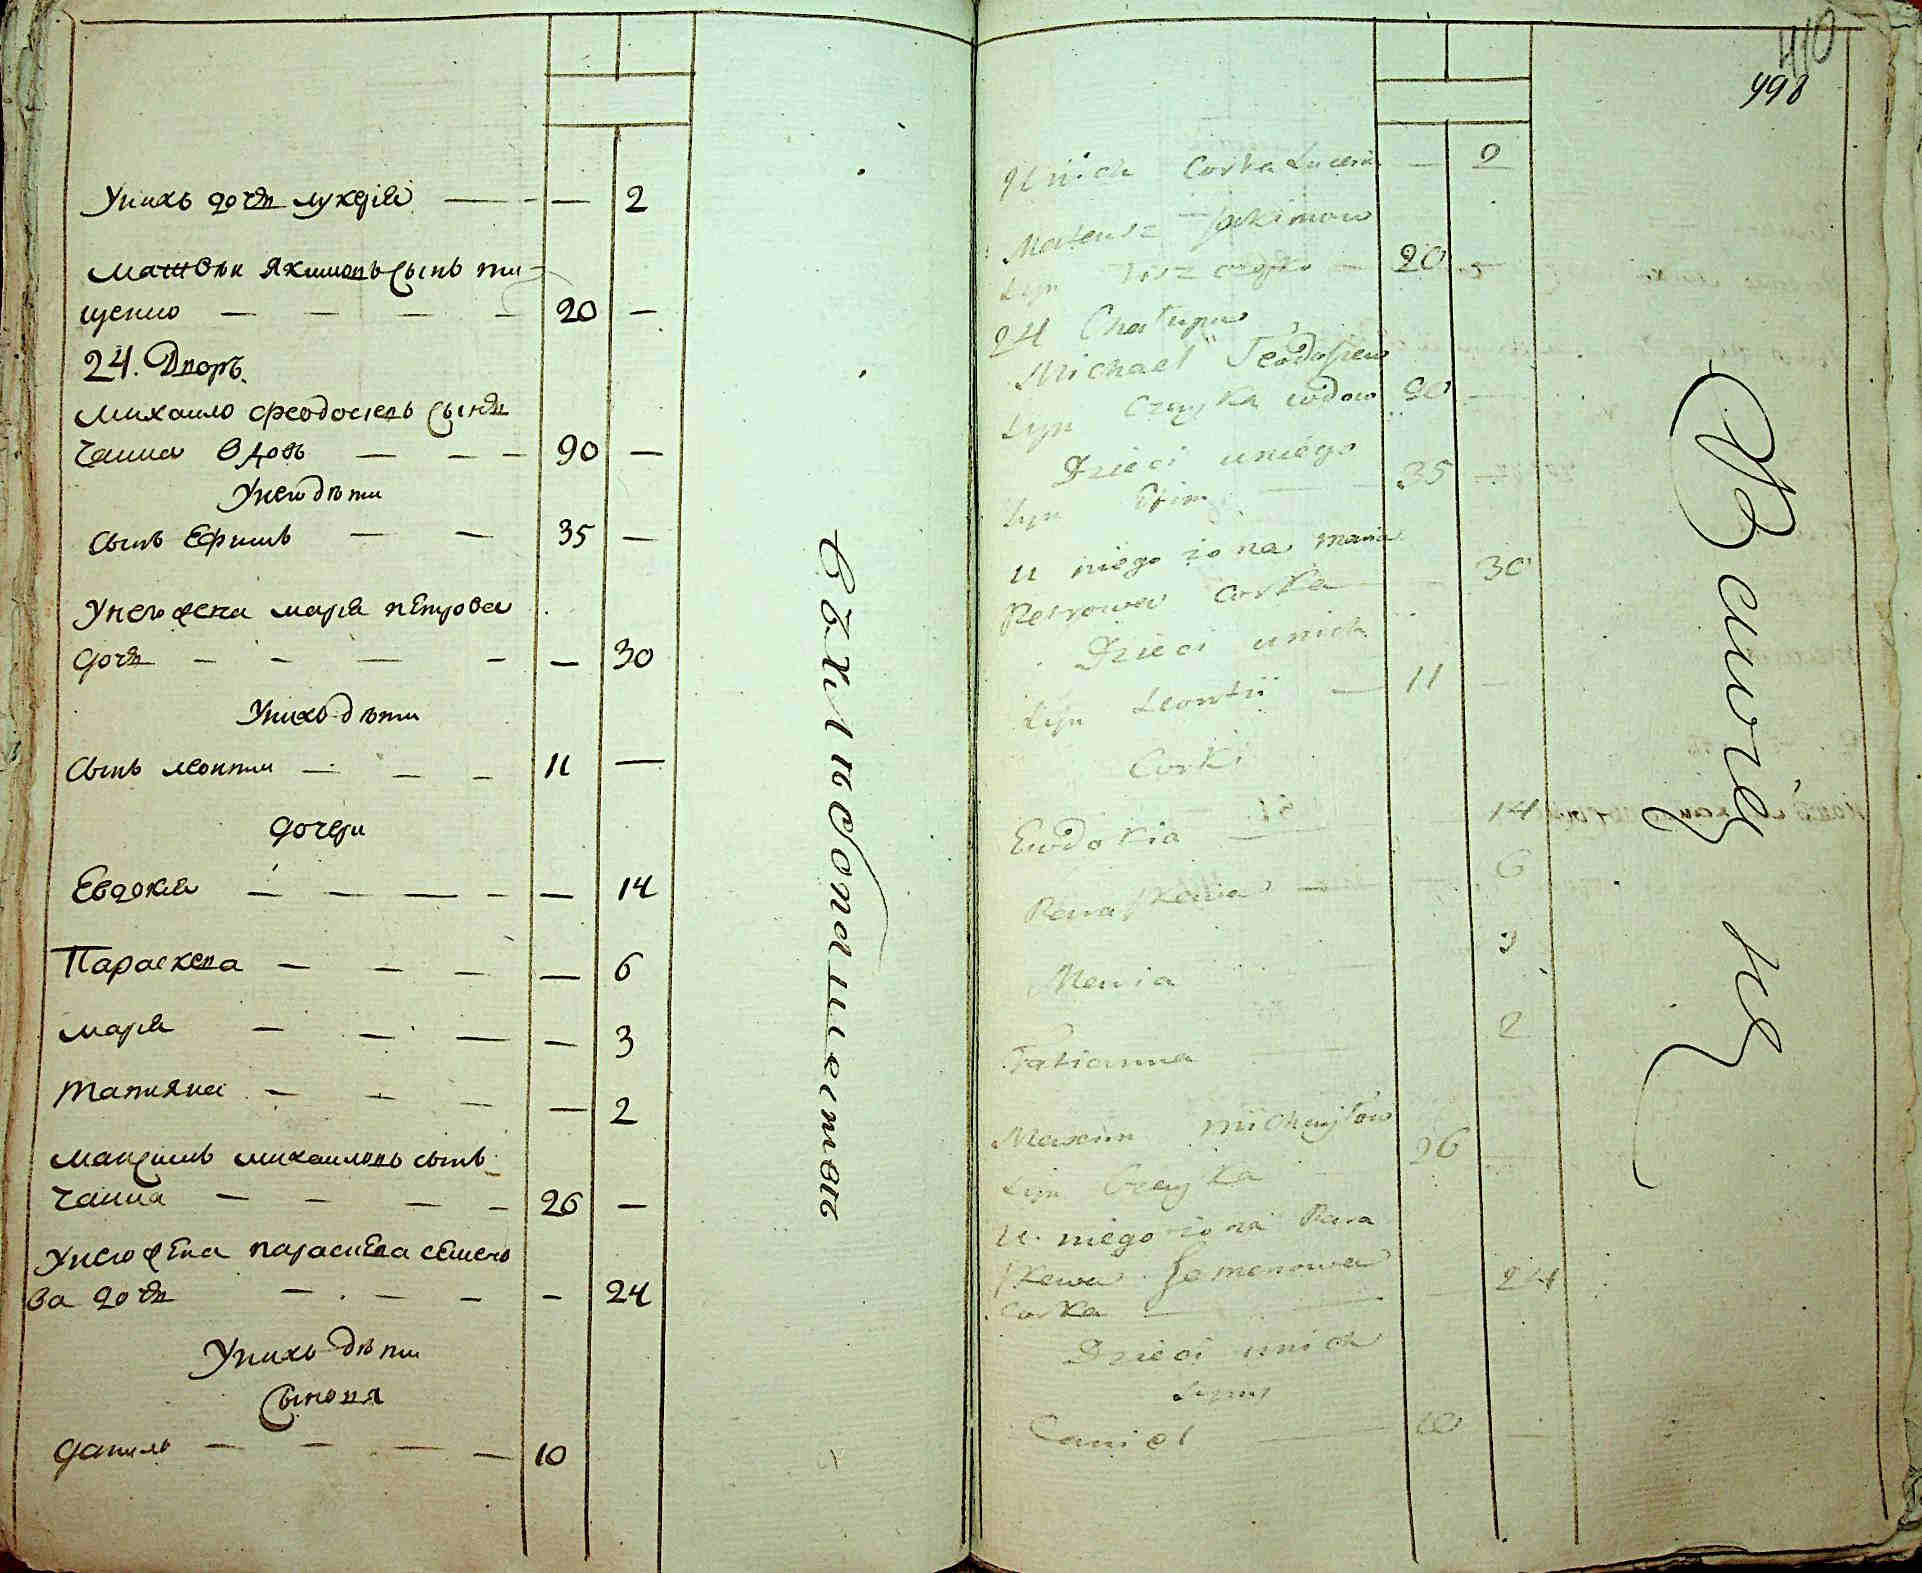 Унихъ дочь лукерія — — — 2
Матвѣи Якимовъ сынъ ти-
щенко — — — — 20 —
24. Дворъ.
Михаило феодосіевъ сынъ
Чаика вдовъ — — — 90 —
Унего дѣти
Сынъ Ефимъ — — 35 —
Унего жена марія петрова
дочь — — — — — 30
Унихъ дѣти
Сынъ леонтіи — — — 11 —
дочери
Евдокія — — — — — 14
Параскева — — — — 6
марія — — — — 3
татияна — — — — 2
Максимъ михаиловъ сынъ
Чаика — — — — 26 —
Унего жена параскева семено
ва дочь — — — — — 24
Унихъ дѣти
Сыновя
данило — — — — 10
410
498
U nich Corka Luceria — 2
Mateusz Jakimow
Syn 20 —
24 Chałupa
Michael Teodosiew
Syn Czayka wdow 90 —
Dzieci u niego
Syn Efim — 35 —
U niego zona Maria
Petrowa Corka — 30
Dzieci u nich
Syn Leontii — 11 —
Corki
Ewdokia — 14
Paraskewia — 6
Maria 3
Tatianna — 2
Maxim Michayłow
Syn Czayka — 26 —
U niego zona Para
skewa Semenowa
Corka — — 24
Dzieci u nich
Syny
Daniel — 10 —